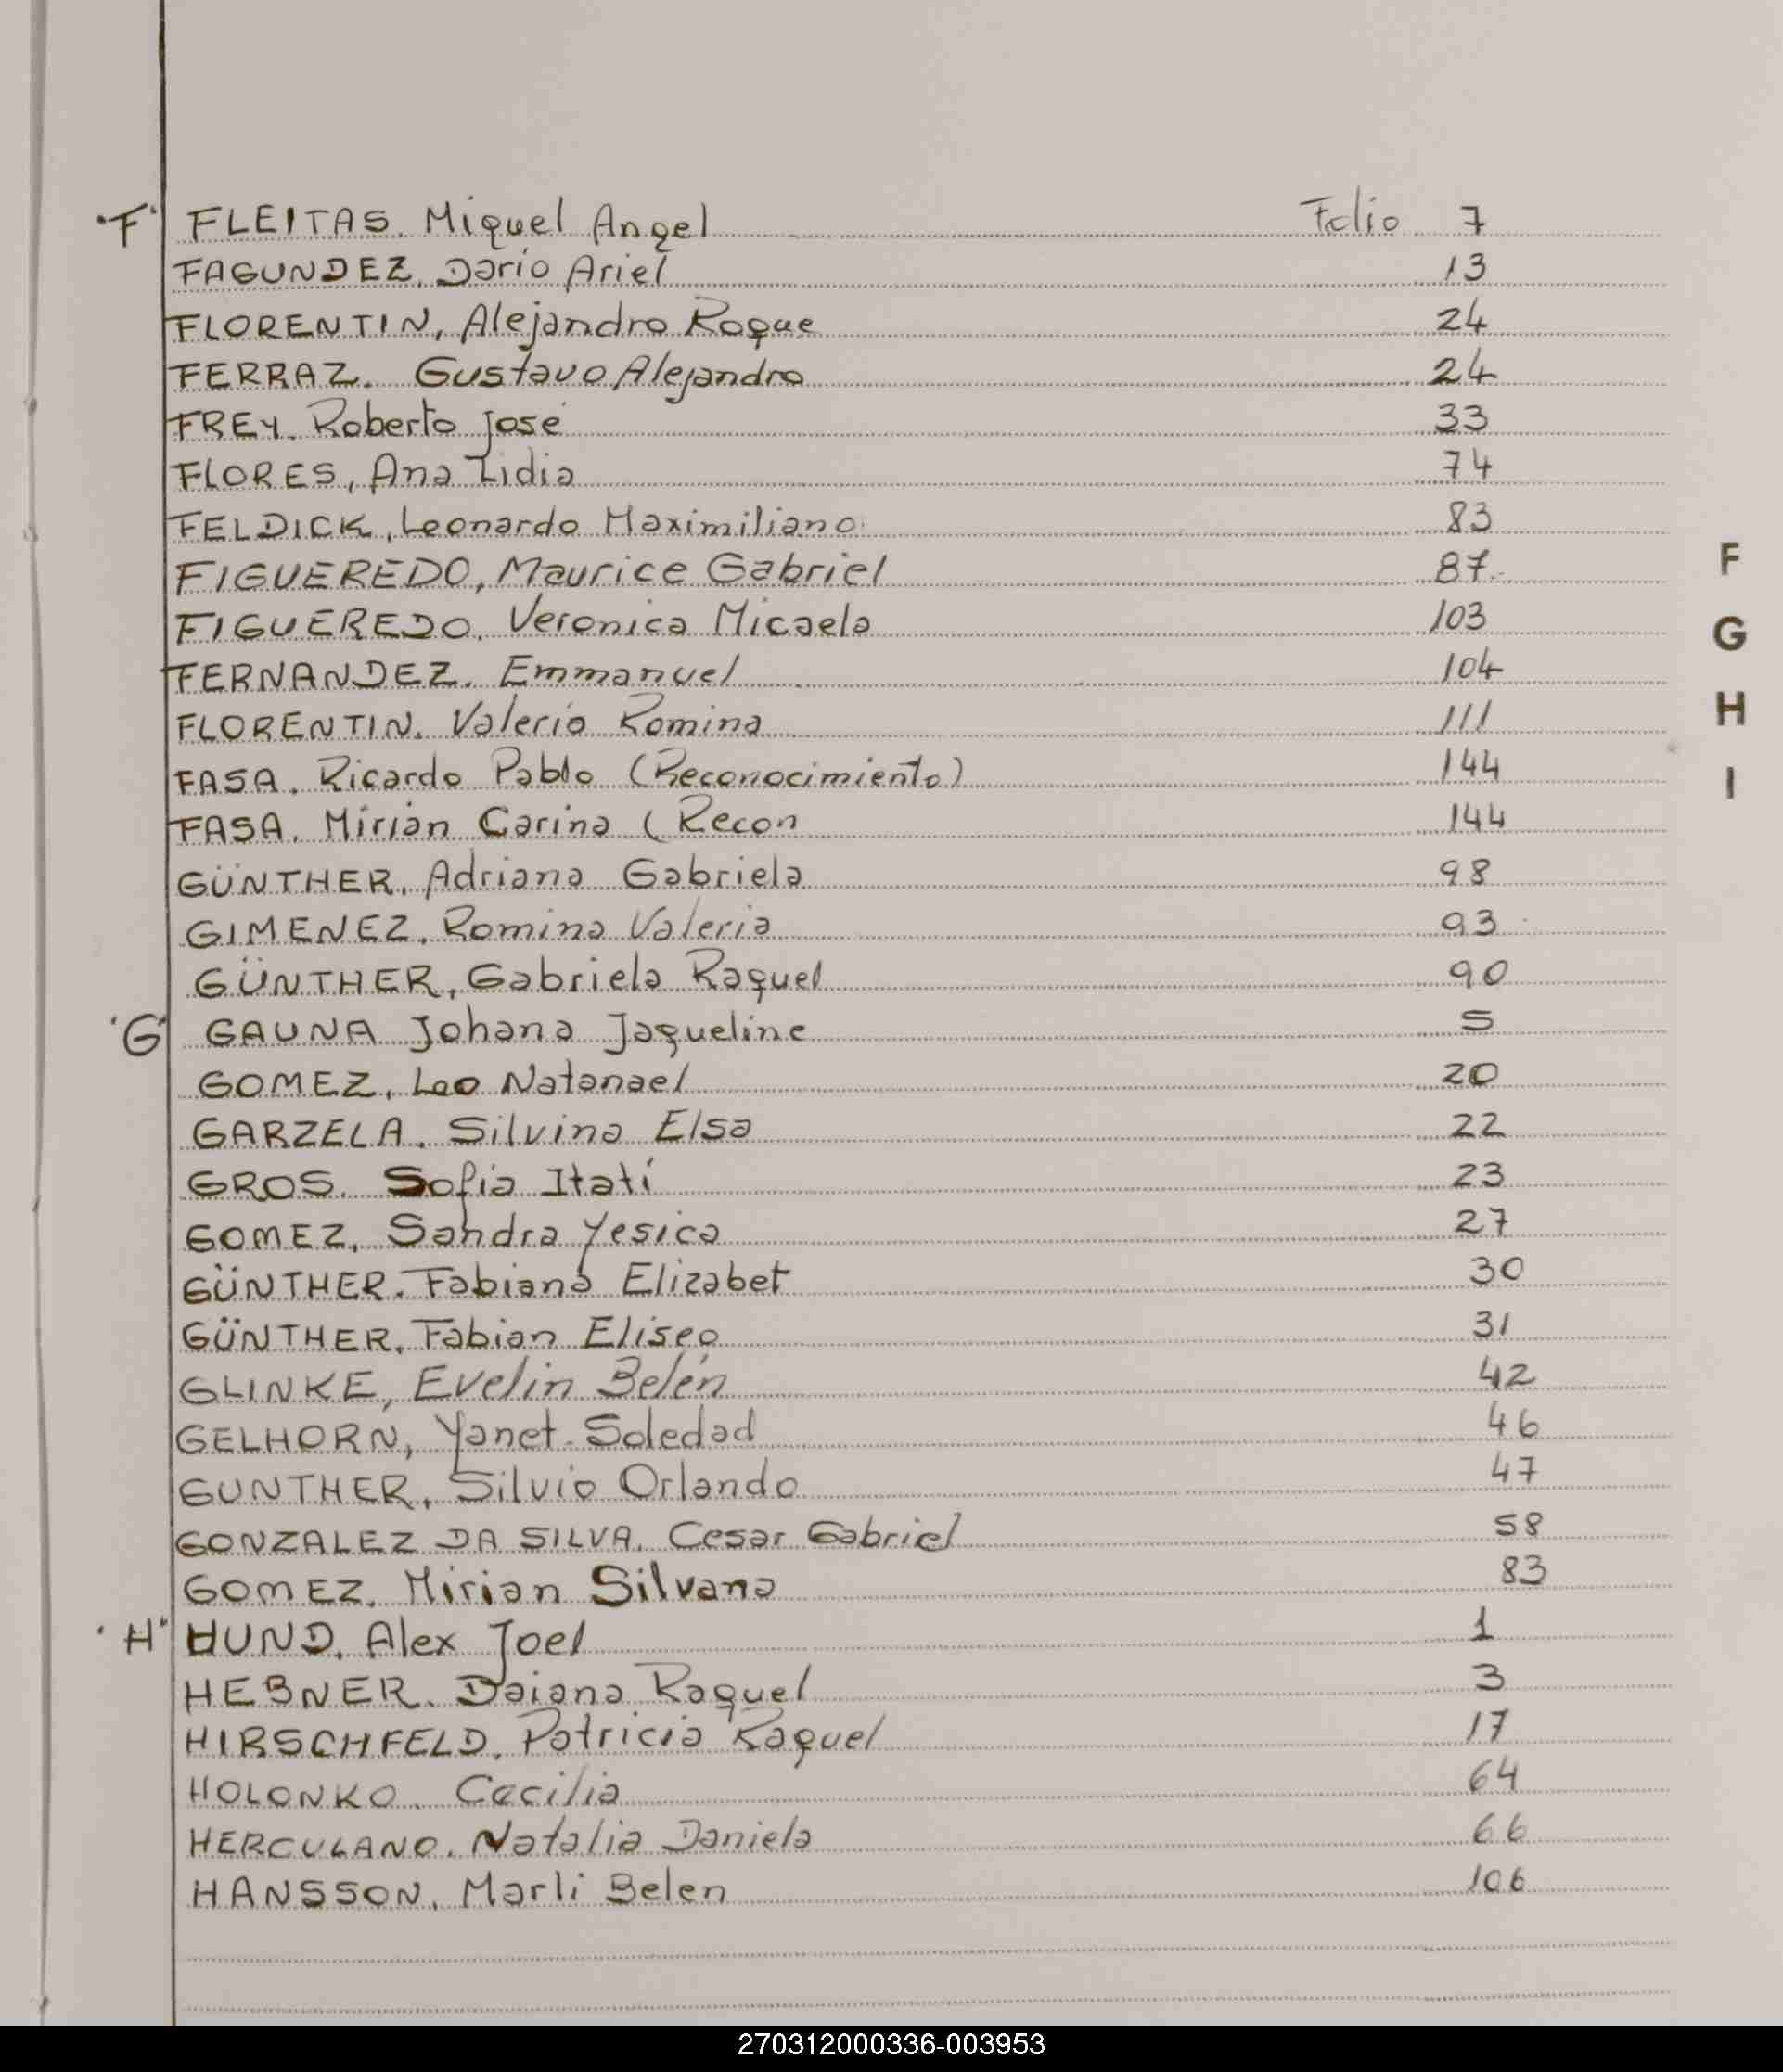 "F" FLEITAS, Miguel Angel Folio 7
FAGUNDEZ, Dario Ariel 13
FLORENTIN, Alejandro Roque 24
FERRAZ, Gustavo Alejandro 24
FREY, Roberto José 33
FLORES, Ana Lidia 74
FELDICK, Leonardo Maximiliano 83
FIGUEREDO, Maurice Gabriel 87
FIGUEREDO, Veronica Micaela 103
F
FERNANDEZ, Emmanuel 104
G
FLORENTIN, Valeria Romina 111
H
FASA, Ricardo Pablo (Reconocimiento) 144
I
FASA, Mirian Carina (Recon 144
GÜNTHER, Adriana Gabriela 98
GIMENEZ, Romina Valeria 93
GÜNTHER, Gabriela Raquel 90
"G" GAUNA Johana Jaqueline 5
GOMEZ, Leo Natanael 20
GARZELA, Silvina Elsa 22
GROS, Sofia Itatí 23
GOMEZ, Sandra Yesica 27
GÜNTHER, Fabiana Elizabet 30
GÜNTHER, Fabian Eliseo 31
GLINKE, Evelin Belén 42
GELHORN, Yanet Soledad 46
GUNTHER, Silvio Orlando 47
GONZALEZ DA SILVA, Cesar Gabriel 58
GOMEZ, Mirian Silvana 83
"H" HUND, Alex Joel 1
HEBNER, Daiana Raquel 3
HIRSCHFELD, Patricia Raquel 17
HOLONKO, Cecilia 64
HERCULANO, Natalia Daniela 66
HANSSON, Marli Belen 106
270312000336-003953